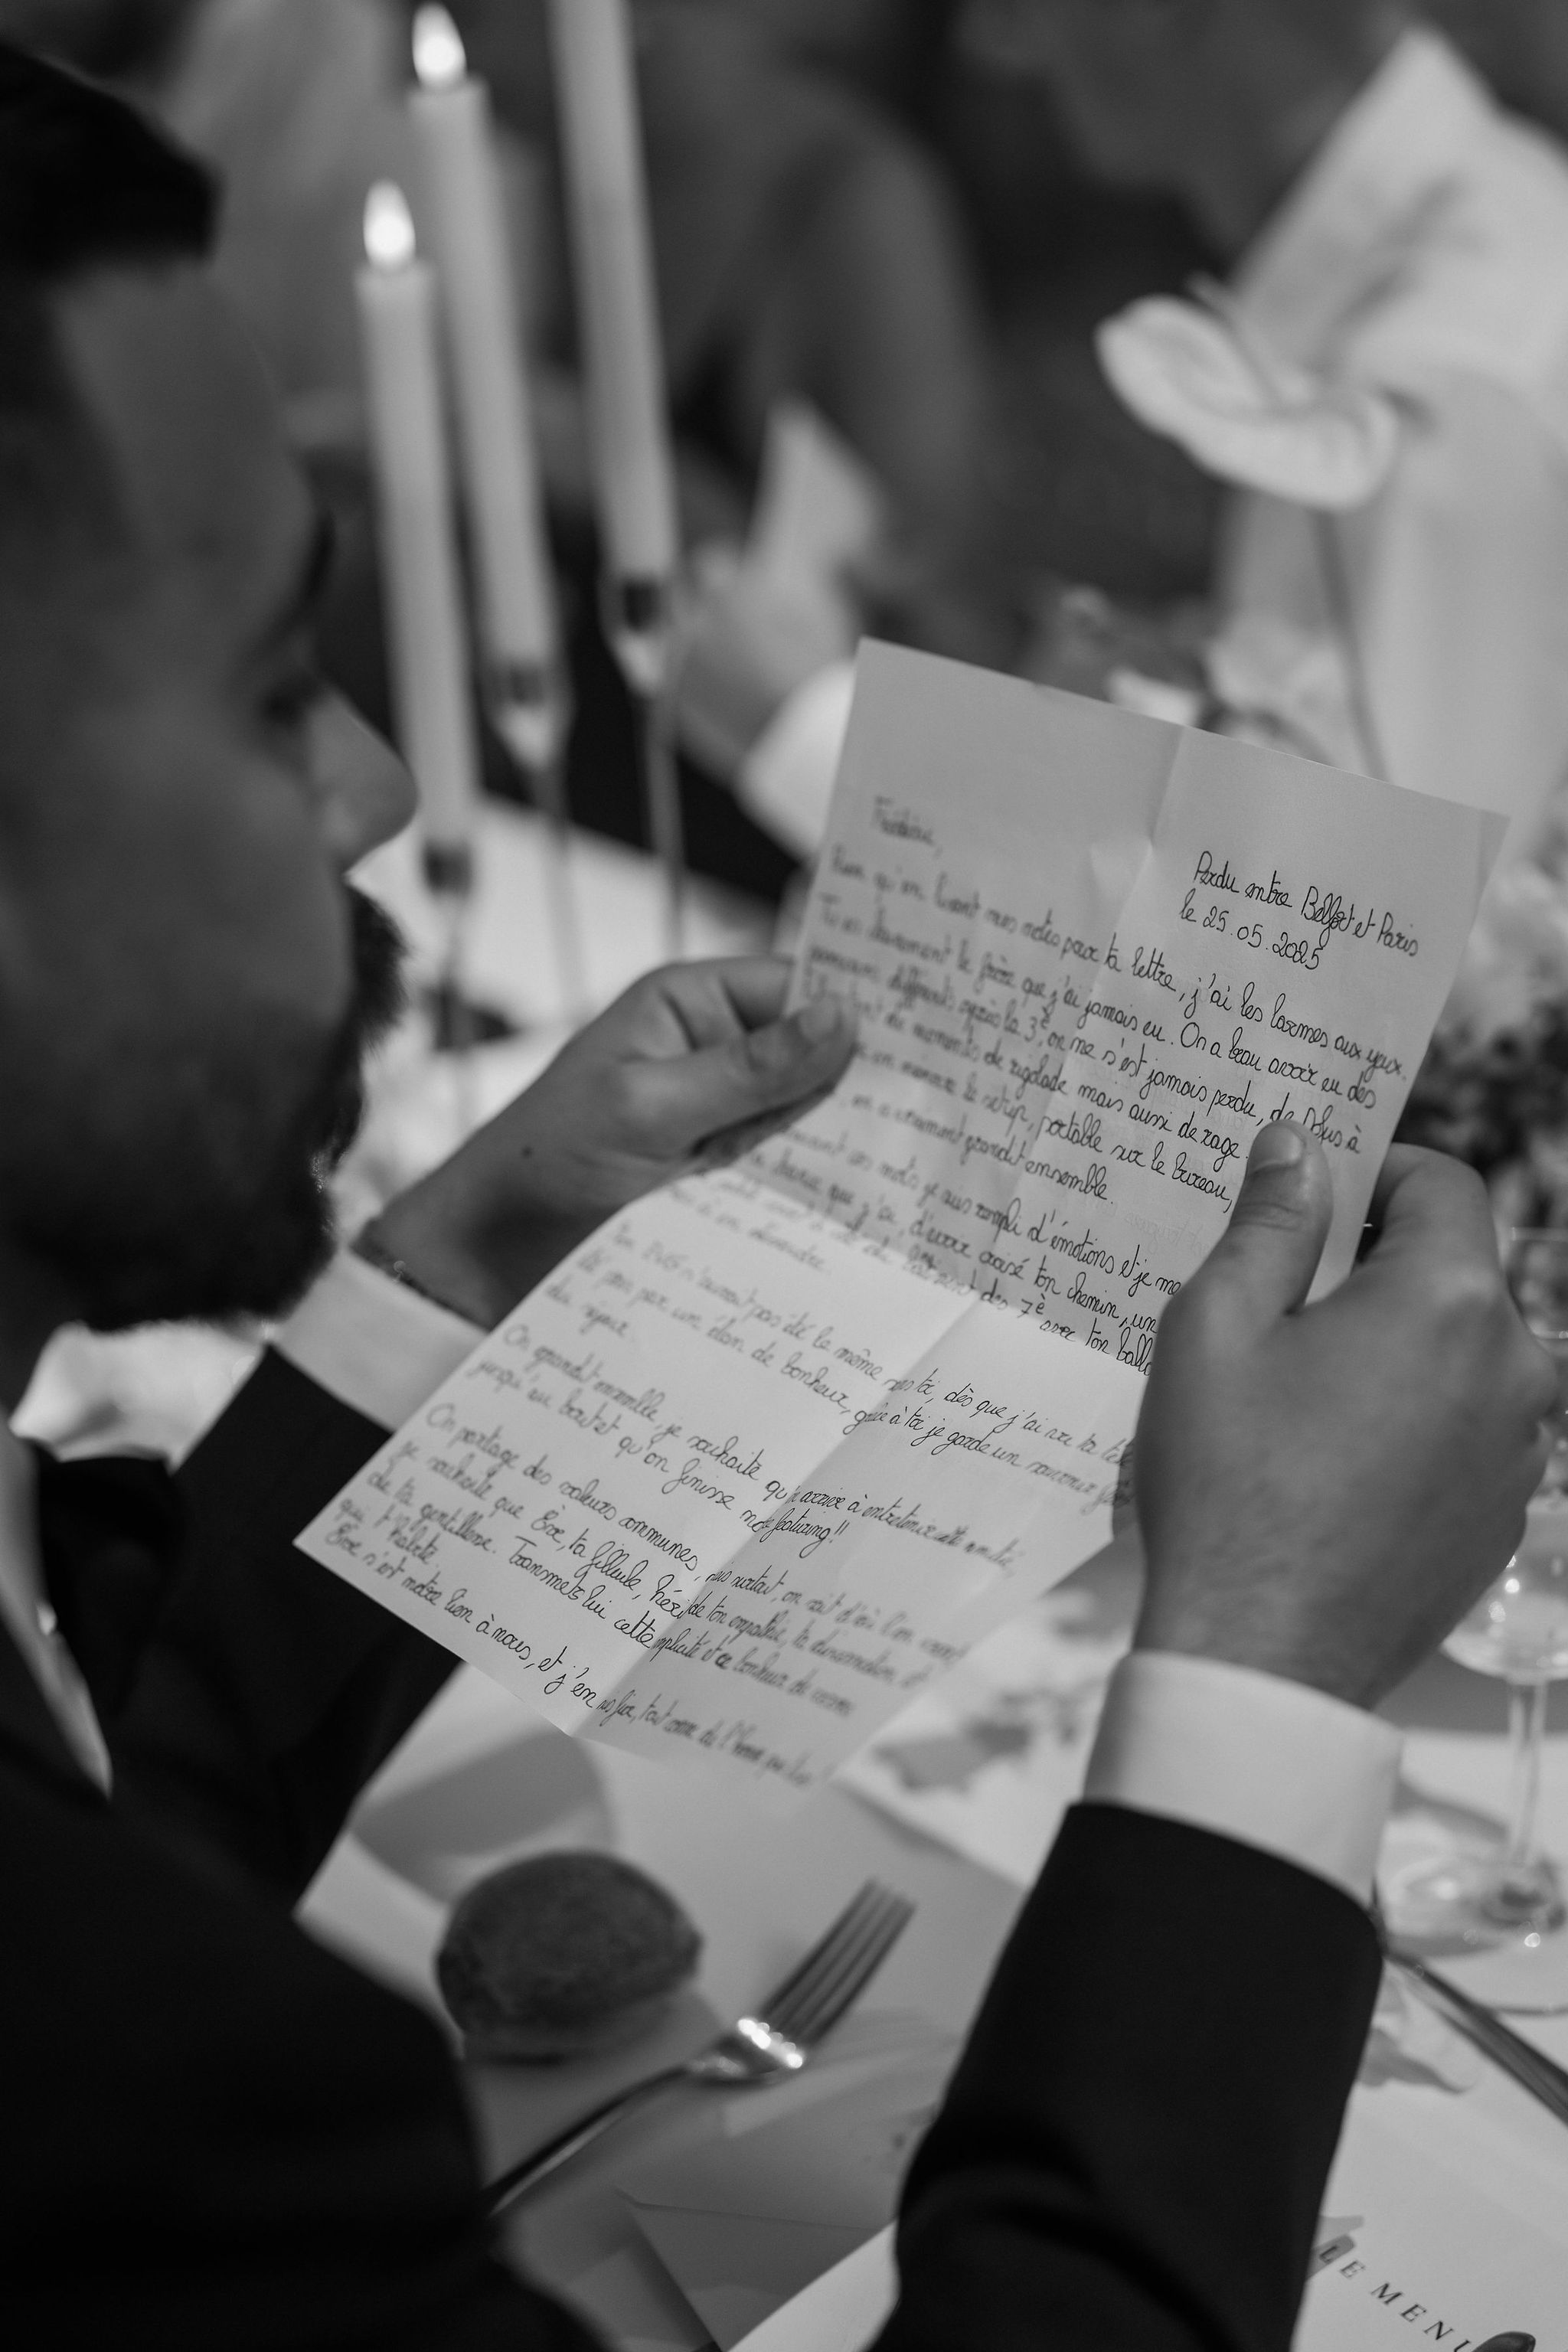 Perdu entre Belfort et Paris
le 25.05.2025
Frédéric,
Rien qu'en lisant mes notes pour ta lettre, j'ai les larmes aux yeux.
Tu es clairement le frère que j'ai jamais eu. On a beau avoir eu des
parcours différents après la 3è, on ne s'est jamais perdu, de plus à
de moments de rigolade mais aussi de rage.
en mineur le setup, portable sur le bureau,
, on a vraiment grandit ensemble.
ces mots je suis rempli d'émotions et je me
chance que j'ai, d'avoir croisé ton chemin, un
des 7è avec ton ballo
n'aurait pas été le même sans toi, dès que j'ai vu ta tête
été pris par un élan de bonheur, grâce à toi je garde un souvenir
du séjour.
On grandit ensemble, je souhaite qu'on arrive à entretenir cette amitié,
jusqu'au bout et qu'on finisse nos featuring!!
On partage des valeurs communes, mais surtout, on sait d'où l'on vient
Je souhaite que Ève, ta filleule, hérite de ton empathie, ta discrétion et
de ta gentillesse. Transmets lui cette simplicité et ce bonheur de vivre
qui t'habite.
Ève s'est notre lien à nous, et j'en suis fier, tout comme de l'homme que tu
LE MENU